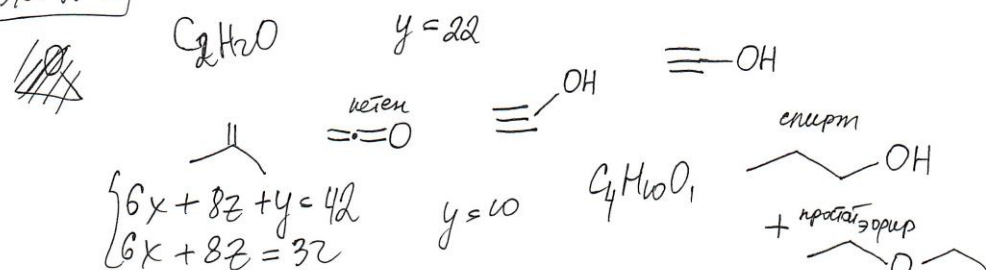 C₂H₂O
y = 22
≡—OH
OH
кетен
=·=O
спирт
OH
{6x + 8z + y = 42
6x + 8z = 32
y = 10
C₄H₁₀O₁
+ простой эфир
O